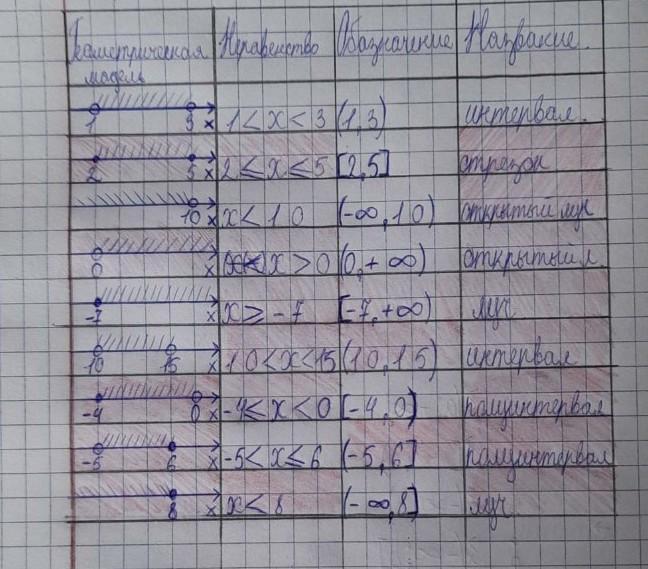 Геометрическая модель Неравенство Обозначение Название.
1 3 x 1 < x < 3 (1, 3) интервал.
2 5 x 2 ≤ x ≤ 5 [2, 5] отрезок
10 x x < 10 (-∞, 10) открытый луч
0 x x > 0 (0, + ∞) открытый л.
-7 x x ≥ -7 [-7, +∞) луч
10 15 x 10 < x < 15 (10, 15) интервал
-4 0 x -4 ≤ x < 0 [-4, 0] полуинтервал
-5 6 x -5 < x ≤ 6 (-5, 6] полуинтервал
8 x x < 8 (-∞, 8] луч